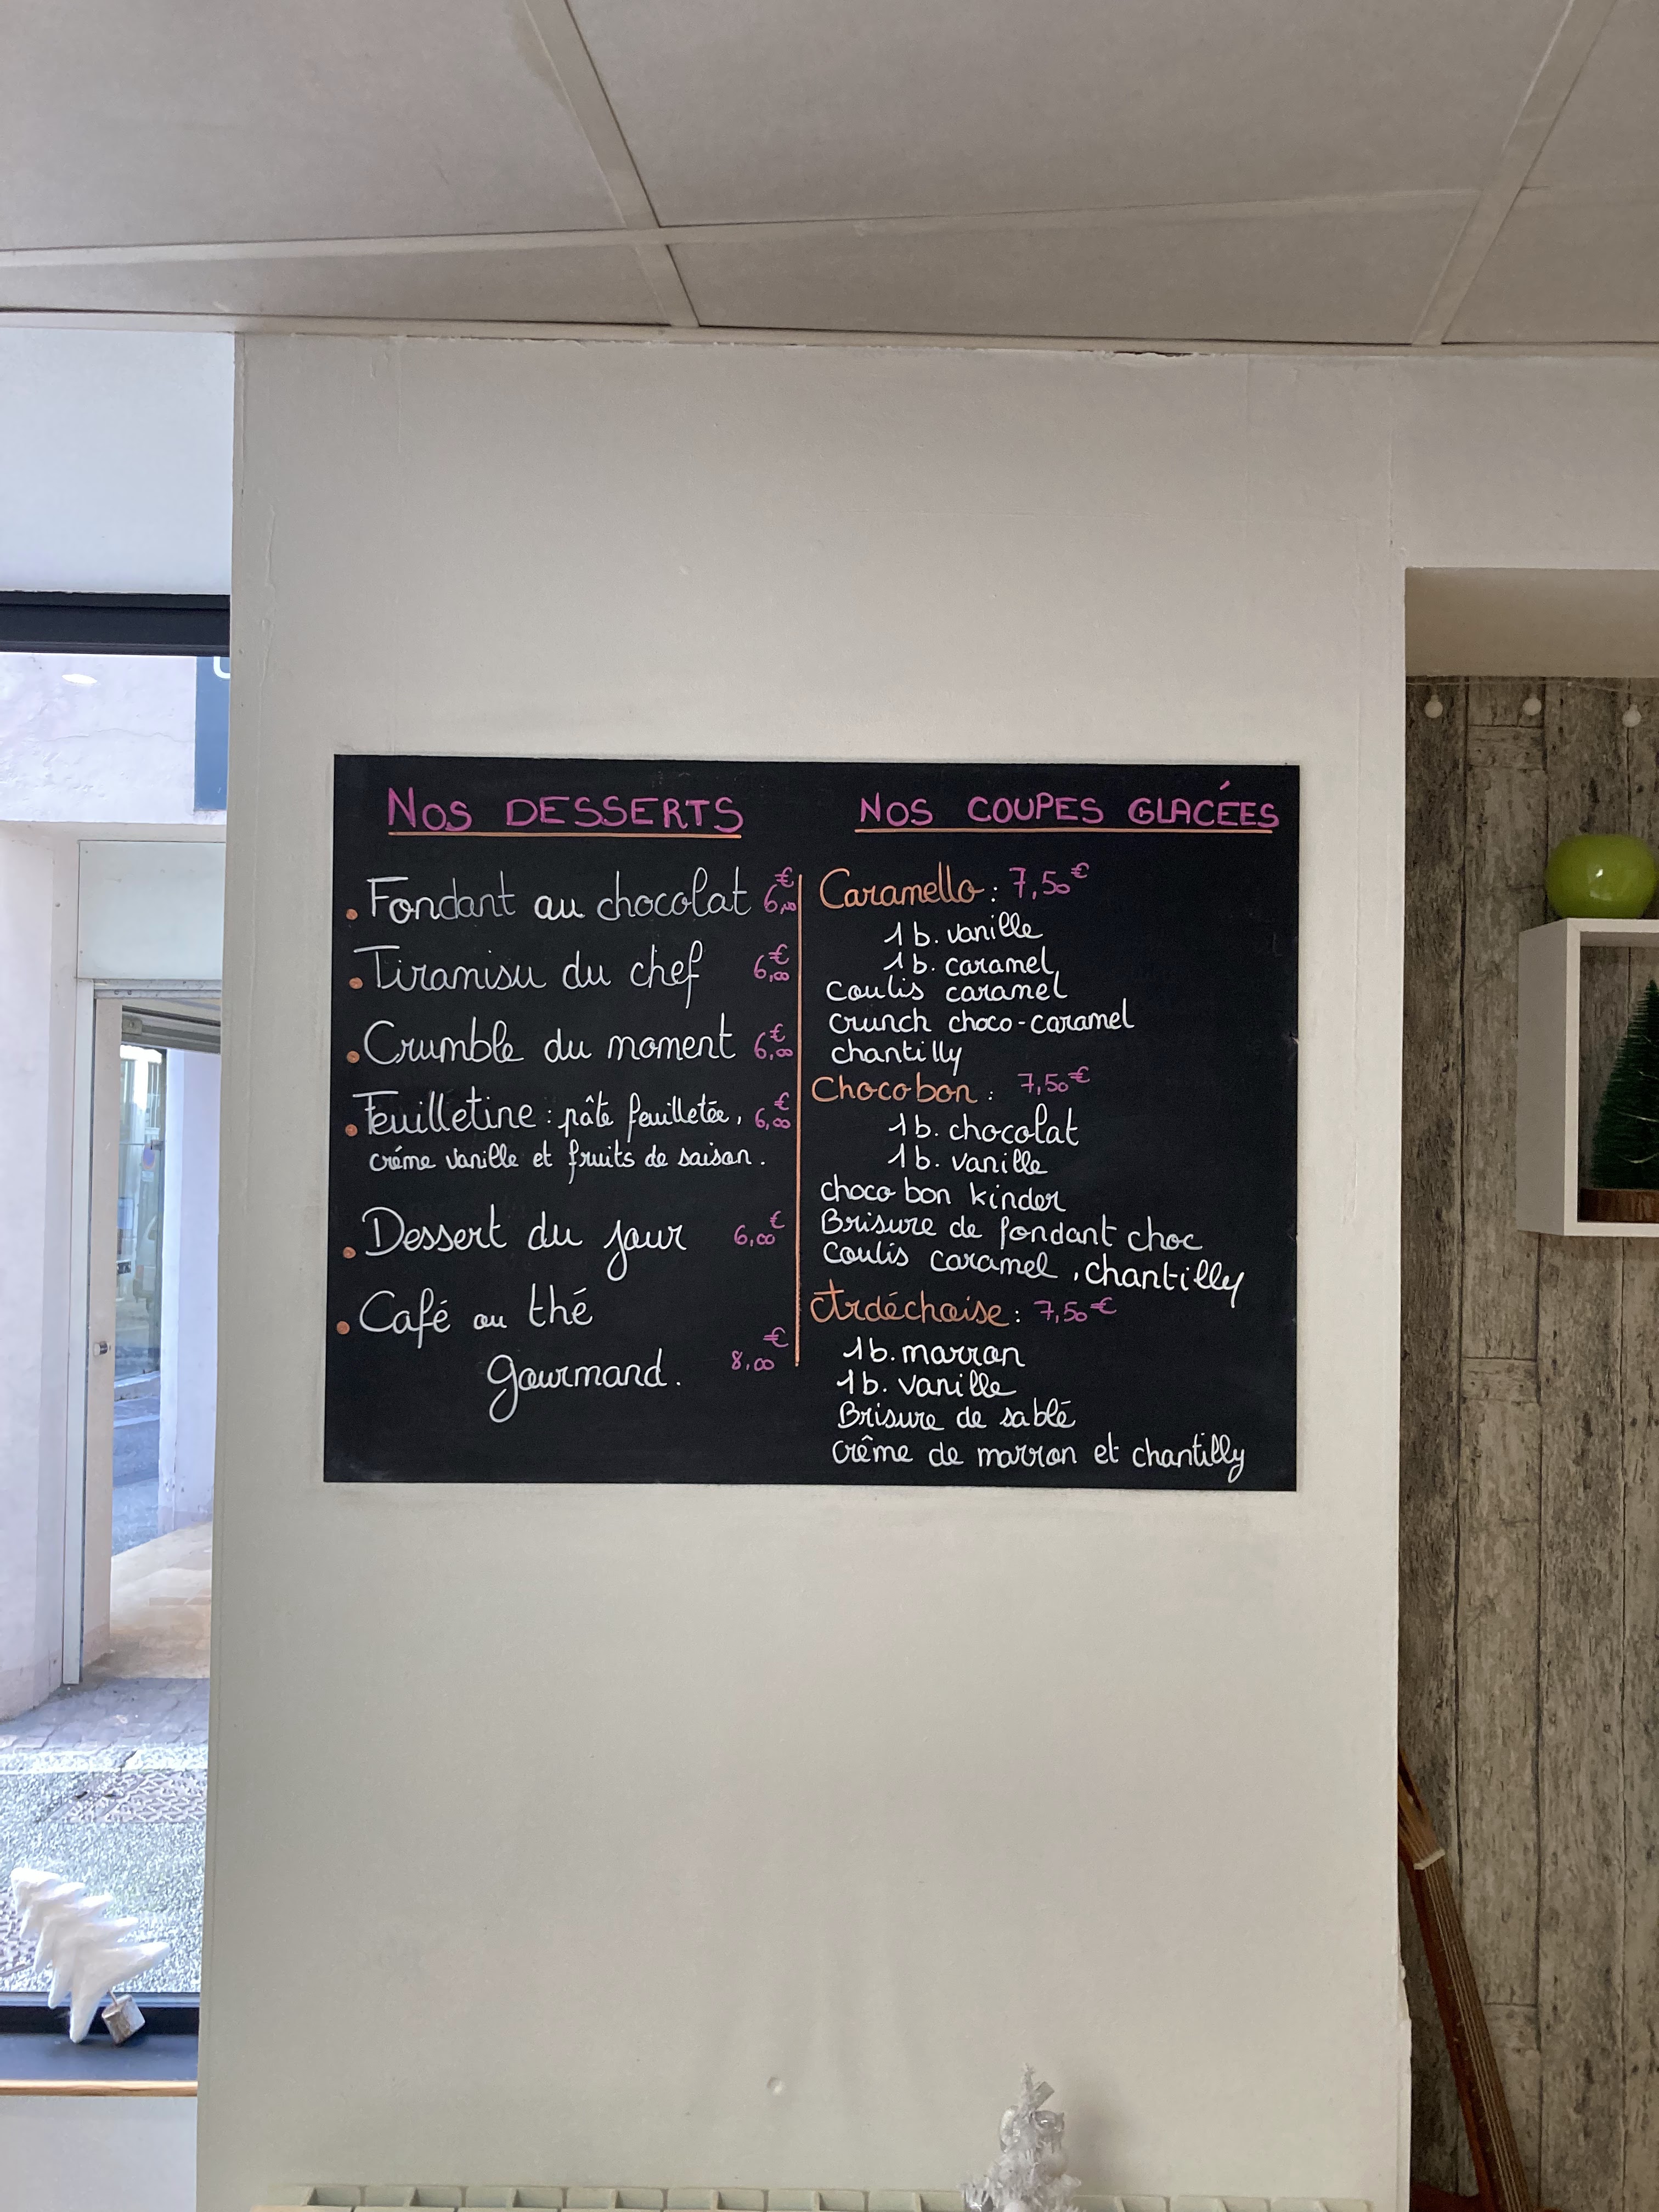 NOS DESSERTS
. Fondant au chocolat 6,00€
. Tiramisu du chef 6,00€
. Crumble du moment 6,00€
. Feuilletine : pâte feuilletée, 6,00€
créme vanille et fruits de saison.
. Dessert du jour 6,00€
. Café ou thé
gourmand. 8,00€
NOS COUPES GLACÉES
Caramello : 7,50€
1 b. vanille
1 b. caramel
coulis caramel
crunch choco-caramel
chantilly
Chocobon : 7,50€
1 b. chocolat
1 b. vanille
choco bon kinder
Brisure de fondant choc
Coulis caramel, chantilly
Ardéchoise : 7,50€
1 b. marron
1 b. vanille
Brisure de sablé
crême de marron et chantilly